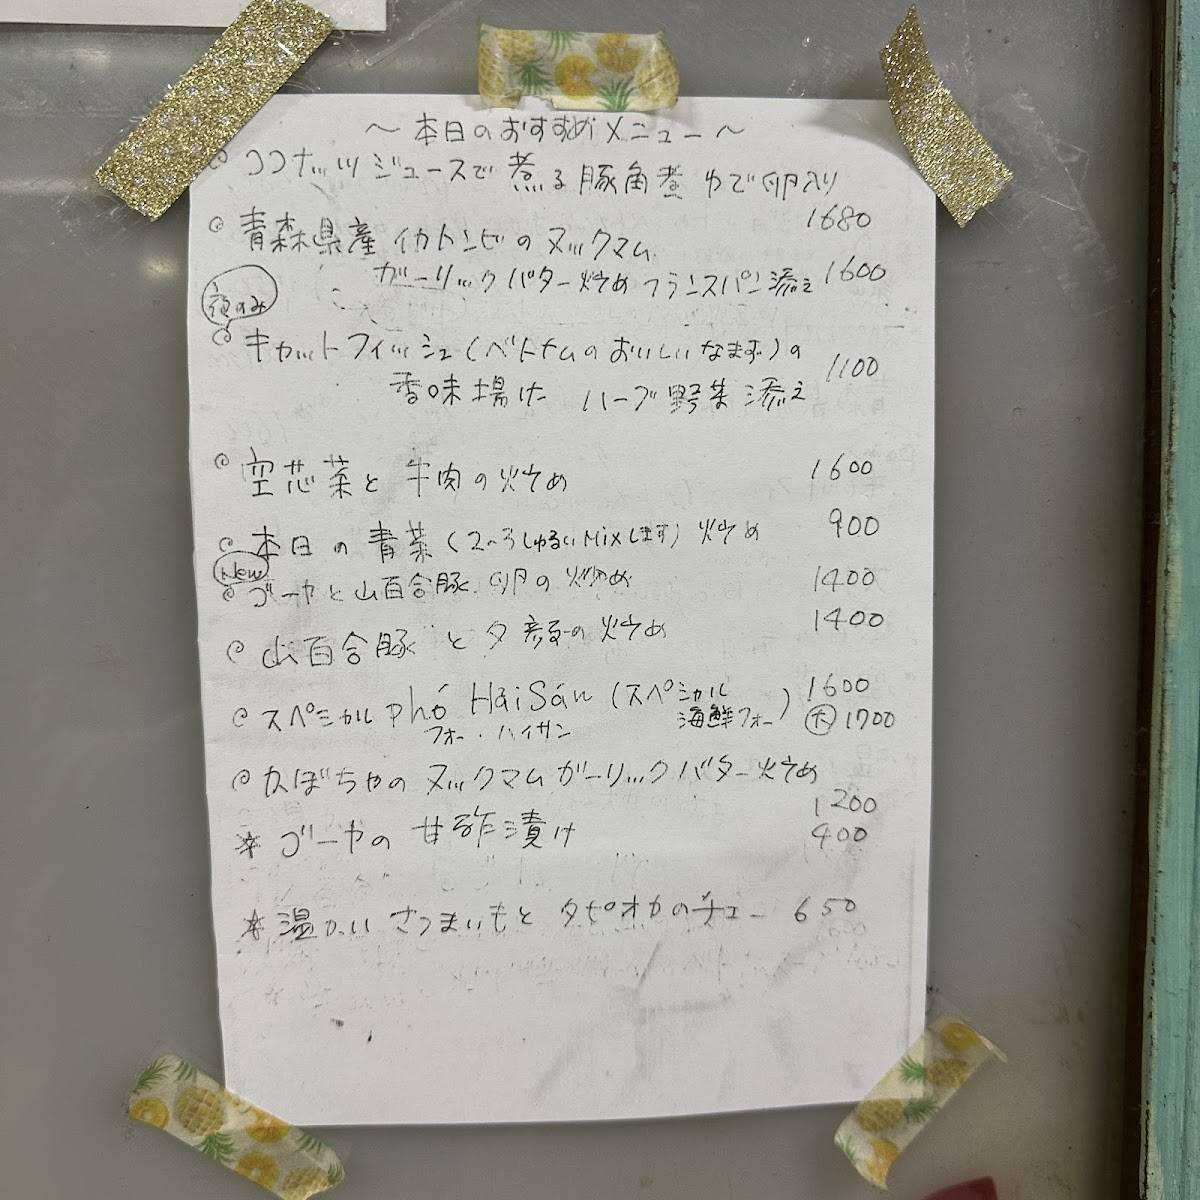 ～本日のおすすめメニュー～
ココナッツジュースで煮る豚角煮 ゆで卵入り
1680
青森県産イカトンビのヌックマム
ガーリックバター炒め フランスパン添え 1600
夜のみ
キャットフィッシュ(ベトナムのおいしいなまず)の
香味揚げ ハーブ野菜添え 1100
空芯菜と牛肉の炒め 1600
本日の青菜(2~3しゅるいMixします)炒め 900
New
ゴーヤと山百合豚 卵の炒め 1400
山百合豚と夕顔の炒め 1400
スペシャル phở Hải Sản (スペシャル 1600
フォー・ハイサン 海鮮フォー) 大 1700
かぼちゃのヌックマムガーリックバター炒め
1200
＊ゴーヤの甘酢漬け 400
＊温かいさつまいもとタピオカのチェー 650